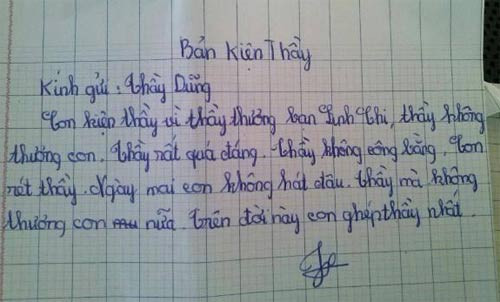 Bản Kiện Thầy
Kính gửi : Thầy Dũng
Con kiện thầy vì thầy thương bạn Linh Chi, thầy không
thương con. Thầy rất quá đáng. Thầy không công bằng. Con
rét thầy. Ngày mai con không hát đâu. Thầy mà không
thương con nữa. Trên đời này con ghép thầy nhất.